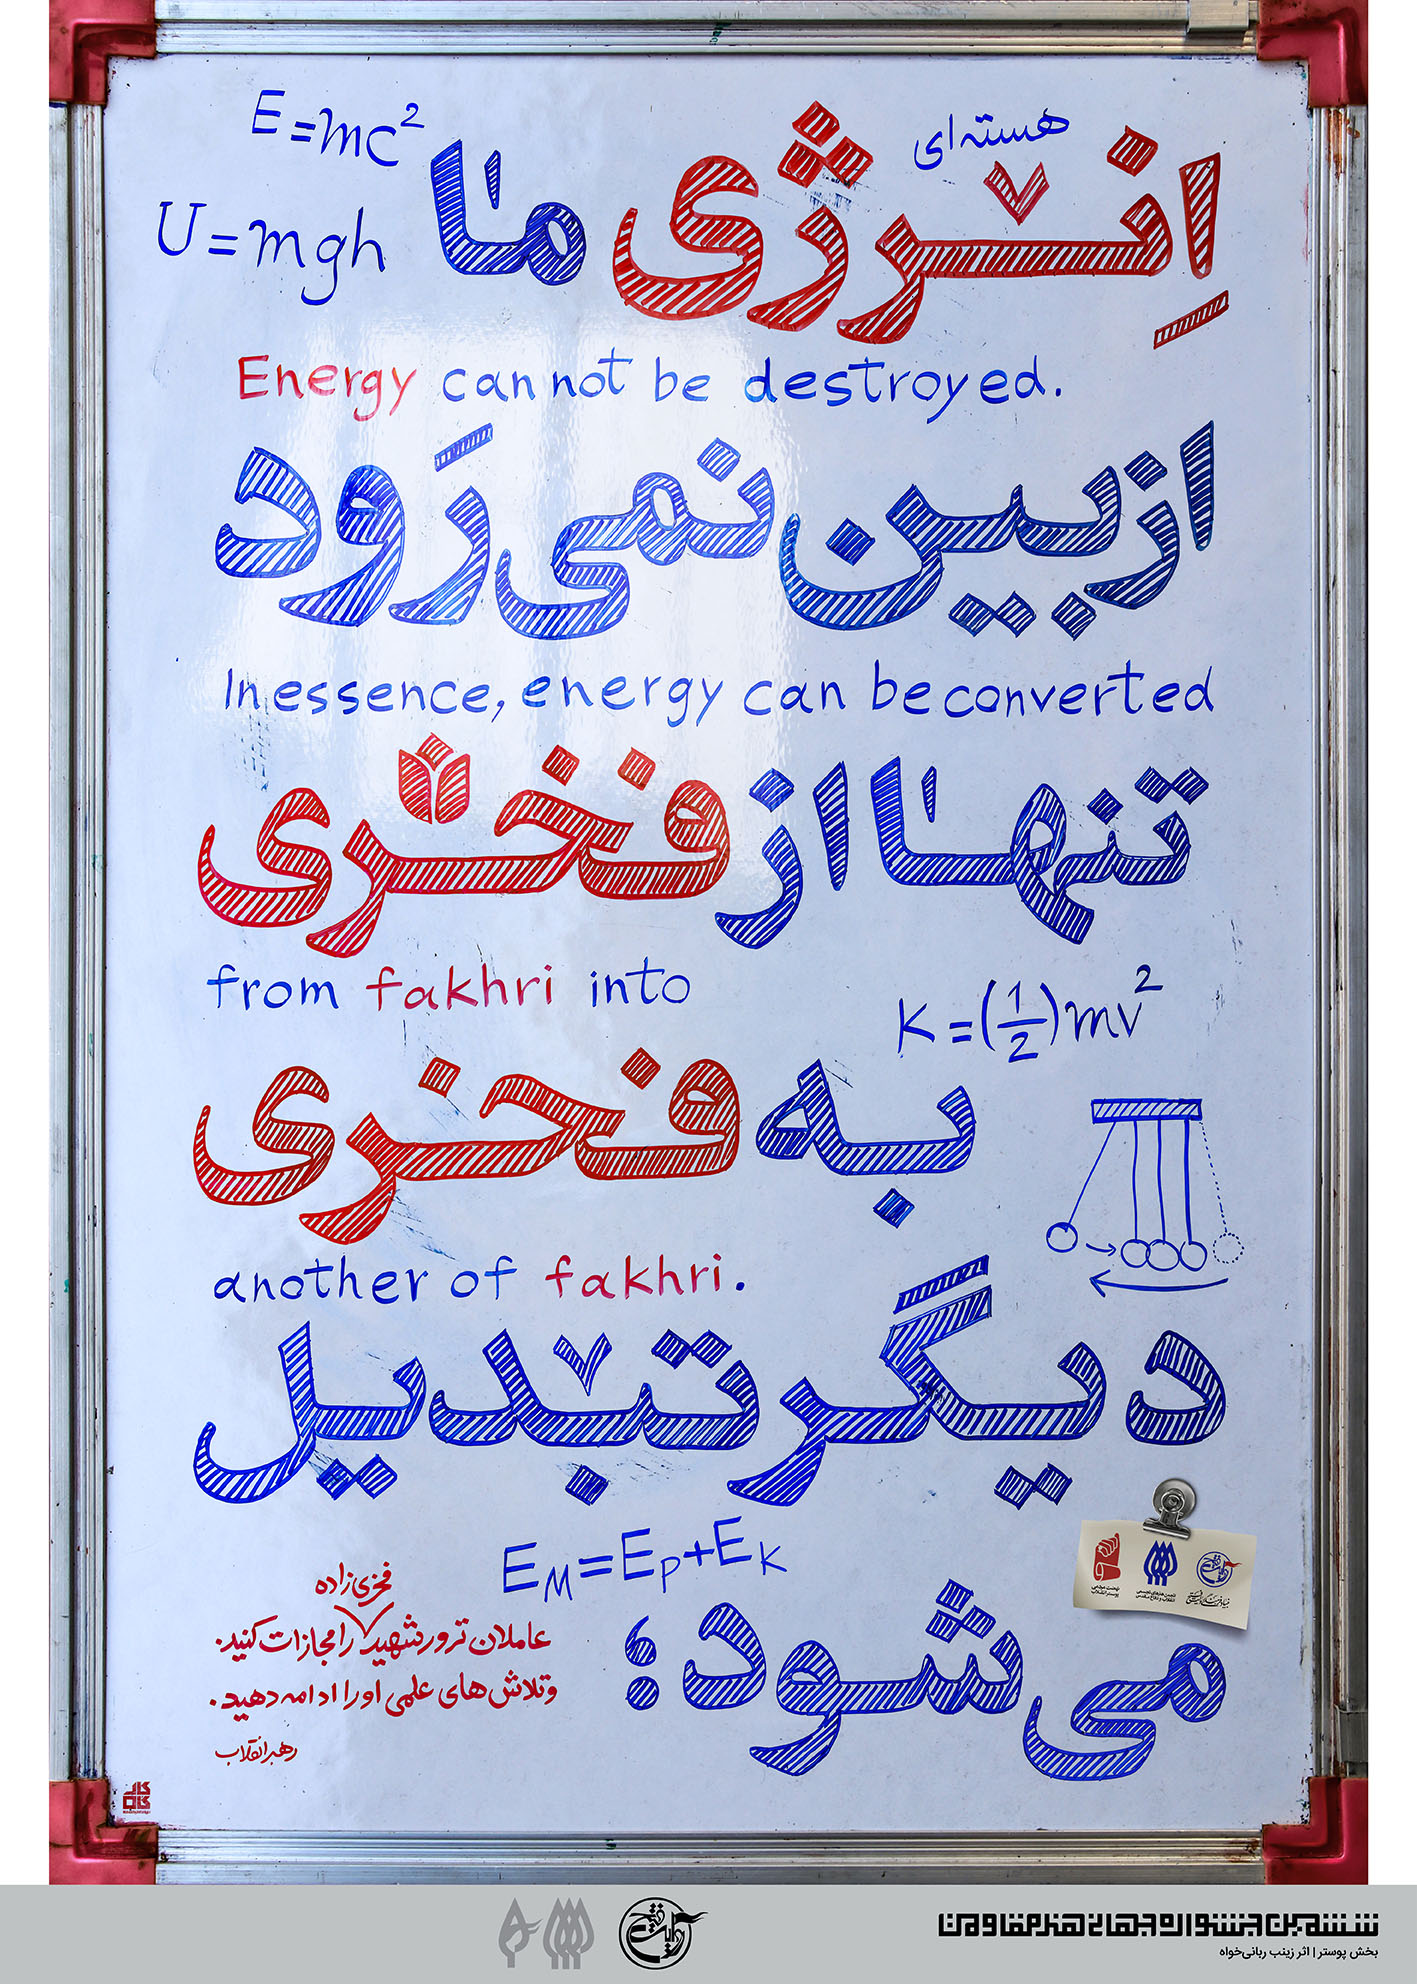 E=mc²
هسته‌ای
اِنرژی ما
U=mgh
Energy cannot be destroyed.
از بین نمی‌رَود
In essence, energy can be converted
تنها از فخری
from fakhri into
K=(1/2)mv²
به فخری
another of fakhri.
دیگر تبدیل
E_M=E_P+E_K
می‌شود؛
فخری‌زاده
عاملان ترور شهید را مجازات کنید.
و تلاش‌های علمی او را ادامه دهید.
رهبر انقلاب
نهضت مردمی
پوستر انقلاب
انجمن هنرهای تجسمی
انقلاب و دفاع مقدس
ششمین جشنواره جهانی هنر مقاومت
بخش پوستر | اثر زینب ربانی‌خواه